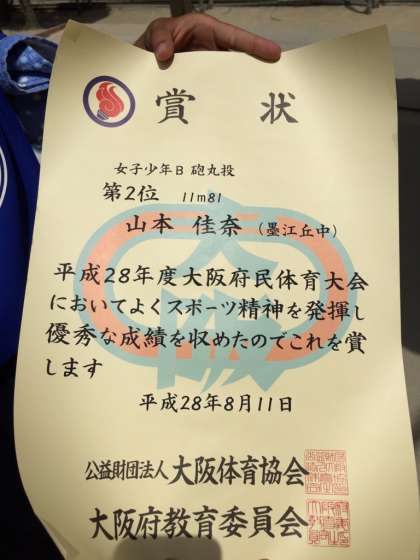 賞状
女子少年B 砲丸投
第2位 11m81
山本 佳奈 (墨江丘中)
平成28年度大阪府民体育大会
においてよくスポーツ精神を発揮し
優秀な成績を収めたのでこれを賞
します
平成28年8月11日
公益財団法人 大阪体育協会
大阪府教育委員会